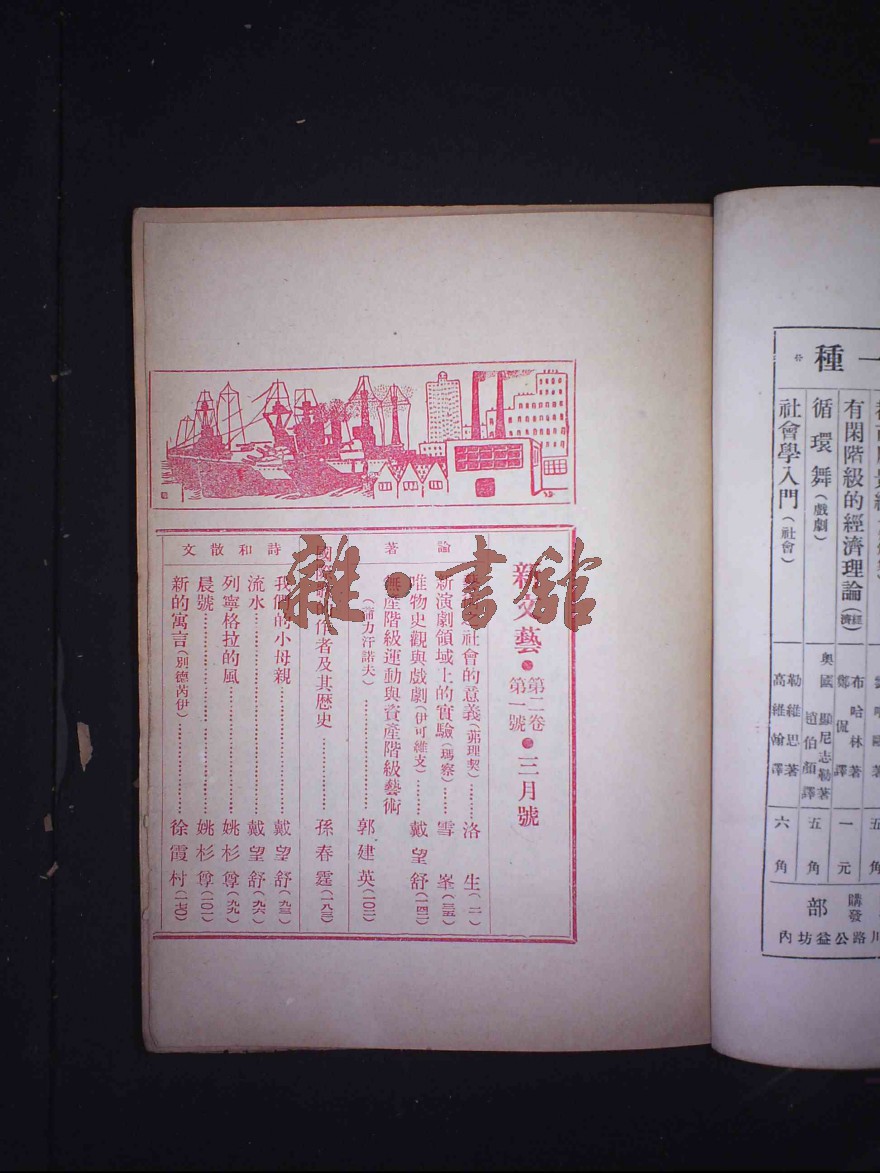 一種
有閑階級的經濟理論（經濟） 布哈林著 鄭侃譯 一元
循環舞（戲劇） 奧國 顯尼志勒著 趙伯顏譯 五角
社會學入門（社會） 勒維思著 高維翰譯 六角
五角
購發
部
川路公益坊內
雜·書館
新文藝・第二卷第一號・三月號
論著
社會的意義（茀理契）………洛生（一）
新演劇領域上的實驗（瑪察）………雪峯
唯物史觀與戲劇（伊可維支）……戴望舒（一四一）
無產階級運動與資產階級藝術
（蒲力汗諾夫）………郭建英（一〇二）
國際歌的作者及其歷史………孫春霆（一八三）
詩和散文
我們的小母親………戴望舒（九三）
流水………戴望舒（九六）
列寧格拉的風………姚杉尊（九九）
晨號………姚杉尊（一〇一）
新的寓言（別德芮伊）………徐霞村（一七〇）